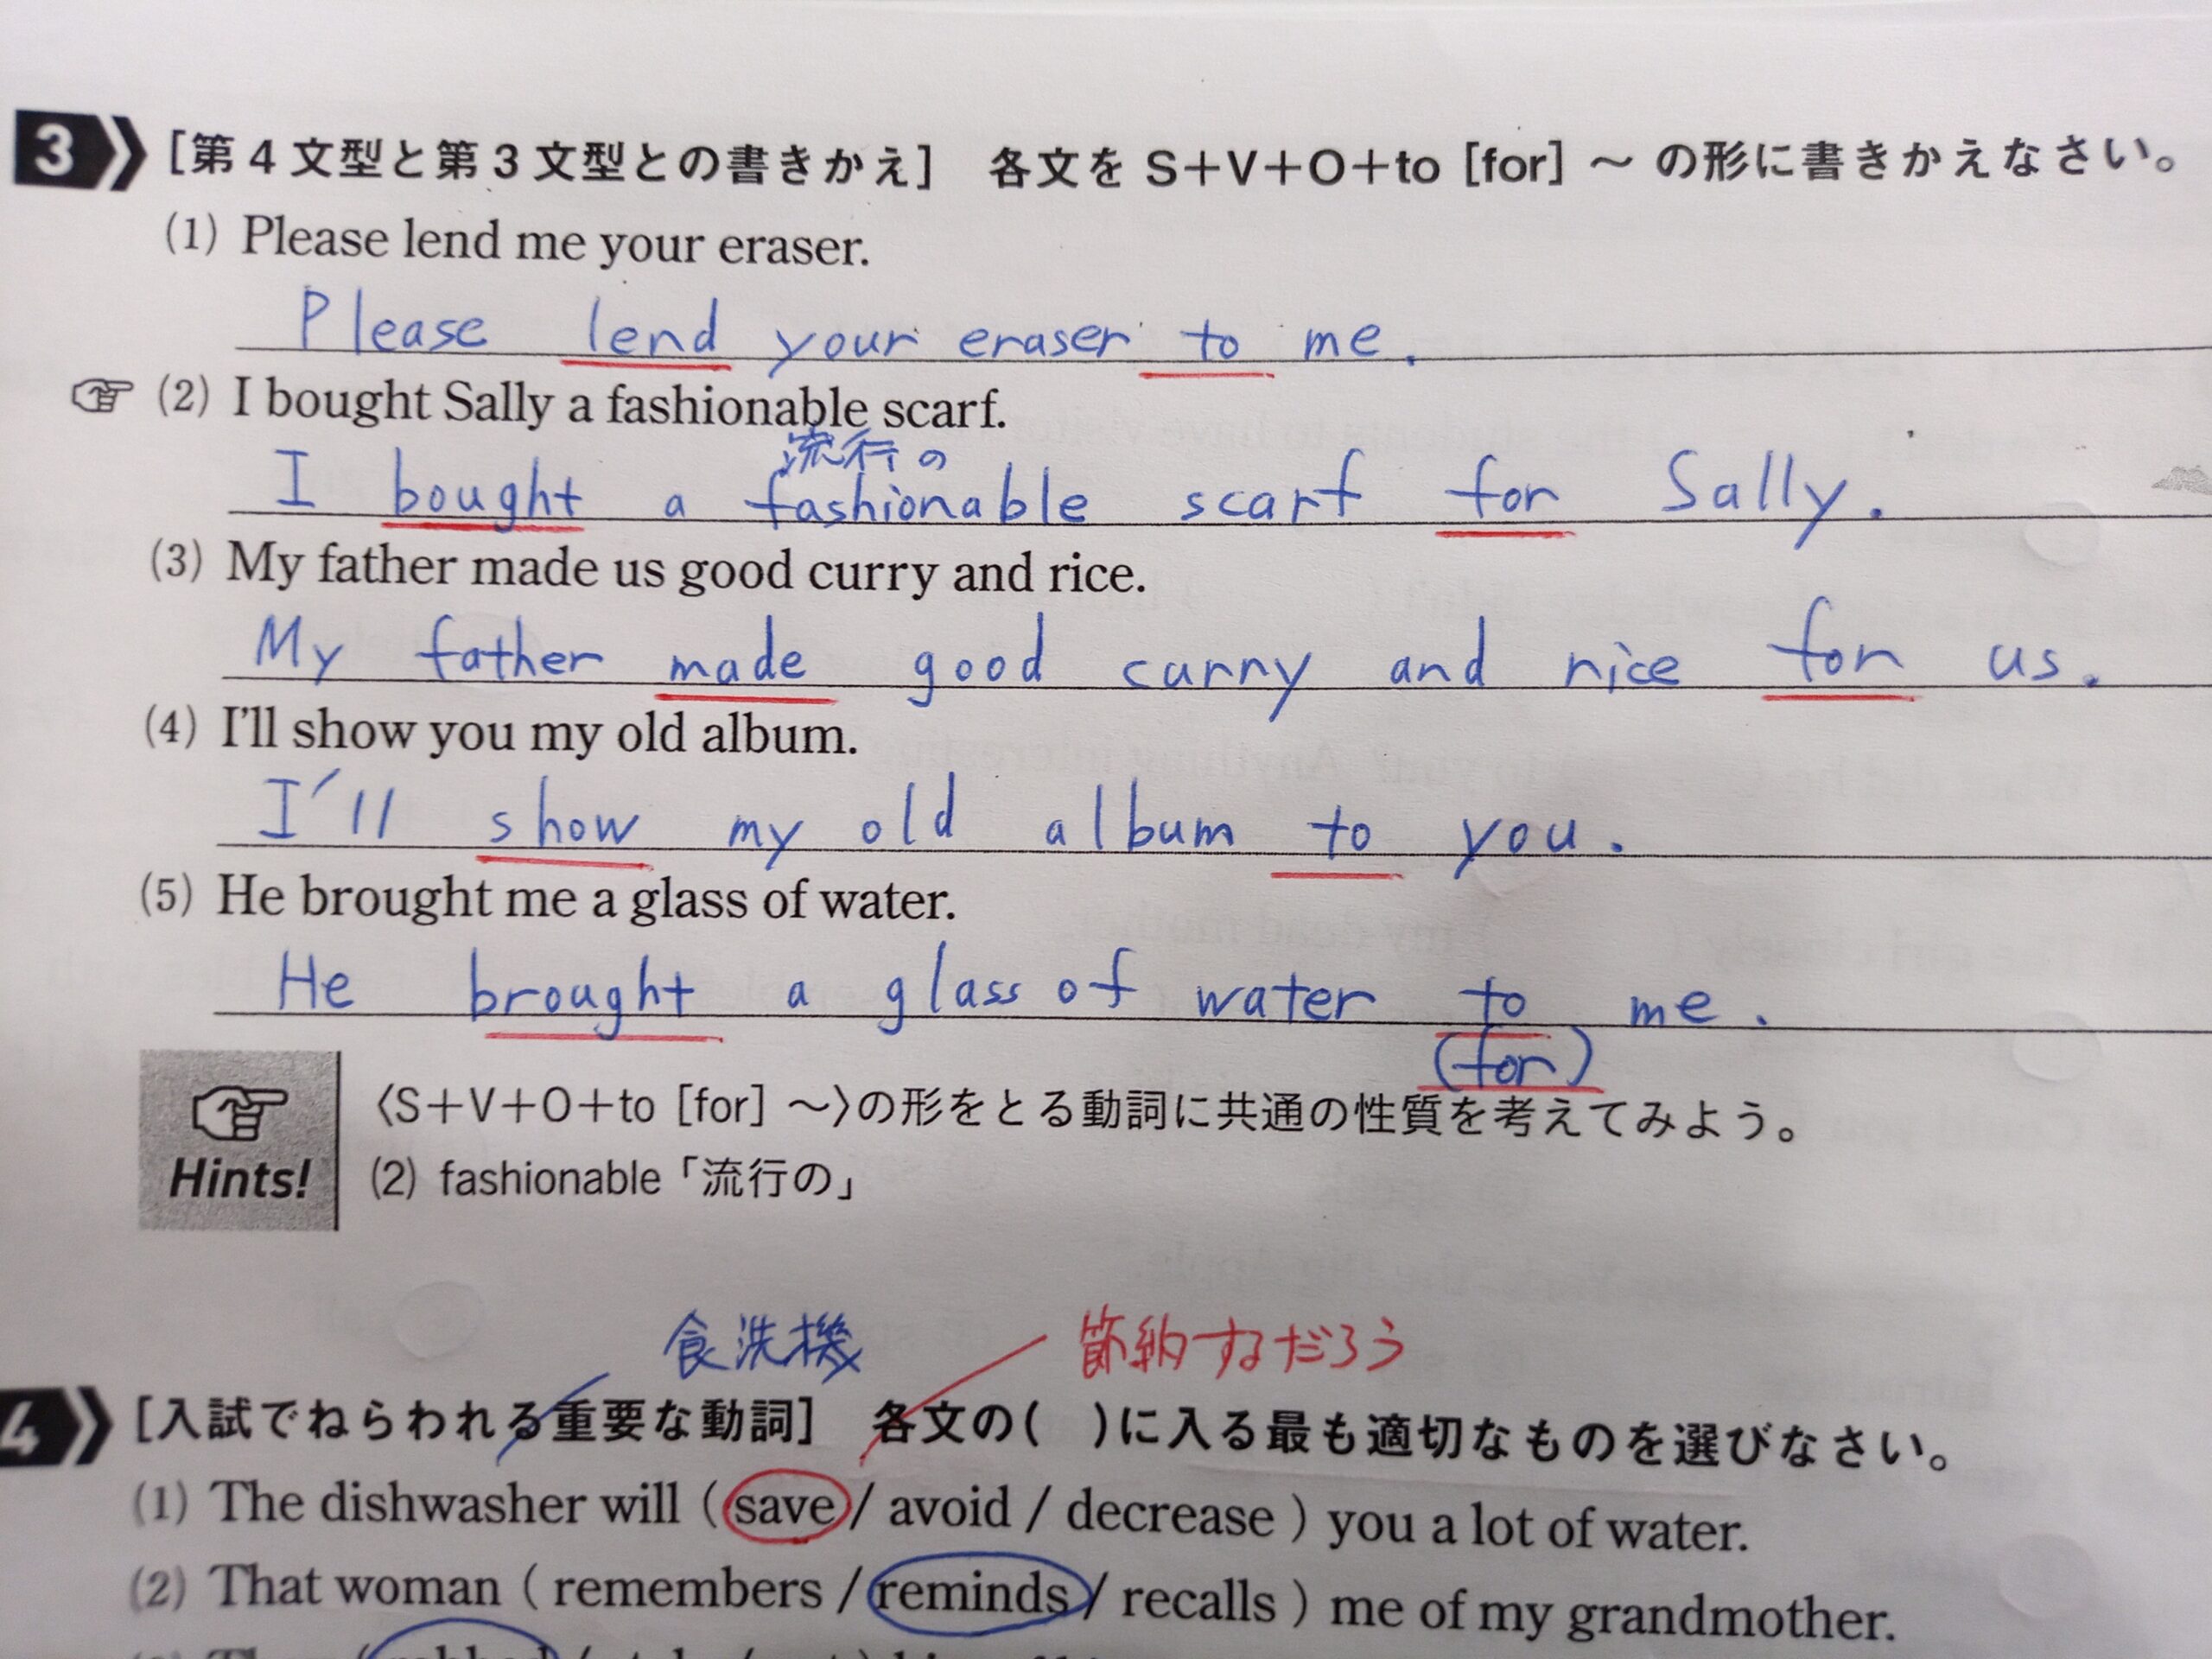 3 [第4文型と第3文型との書きかえ] 各文を S+V+O+to [for] ～ の形に書きかえなさい。
(1) Please lend me your eraser.
Please lend your eraser to me.
(2) I bought Sally a fashionable scarf.
流行の
I bought a fashionable scarf for Sally.
(3) My father made us good curry and rice.
My father made good curry and rice for us.
(4) I'll show you my old album.
I'll show my old album to you.
(5) He brought me a glass of water.
He brought a glass of water to me.
(for)
〈S+V+O+to [for] ～〉の形をとる動詞に共通の性質を考えてみよう。
Hints! (2) fashionable「流行の」
食洗機 節約するだろう
4 [入試でねらわれる重要な動詞] 各文の( )に入る最も適切なものを選びなさい。
(1) The dishwasher will ( save / avoid / decrease ) you a lot of water.
(2) That woman ( remembers / reminds / recalls ) me of my grandmother.